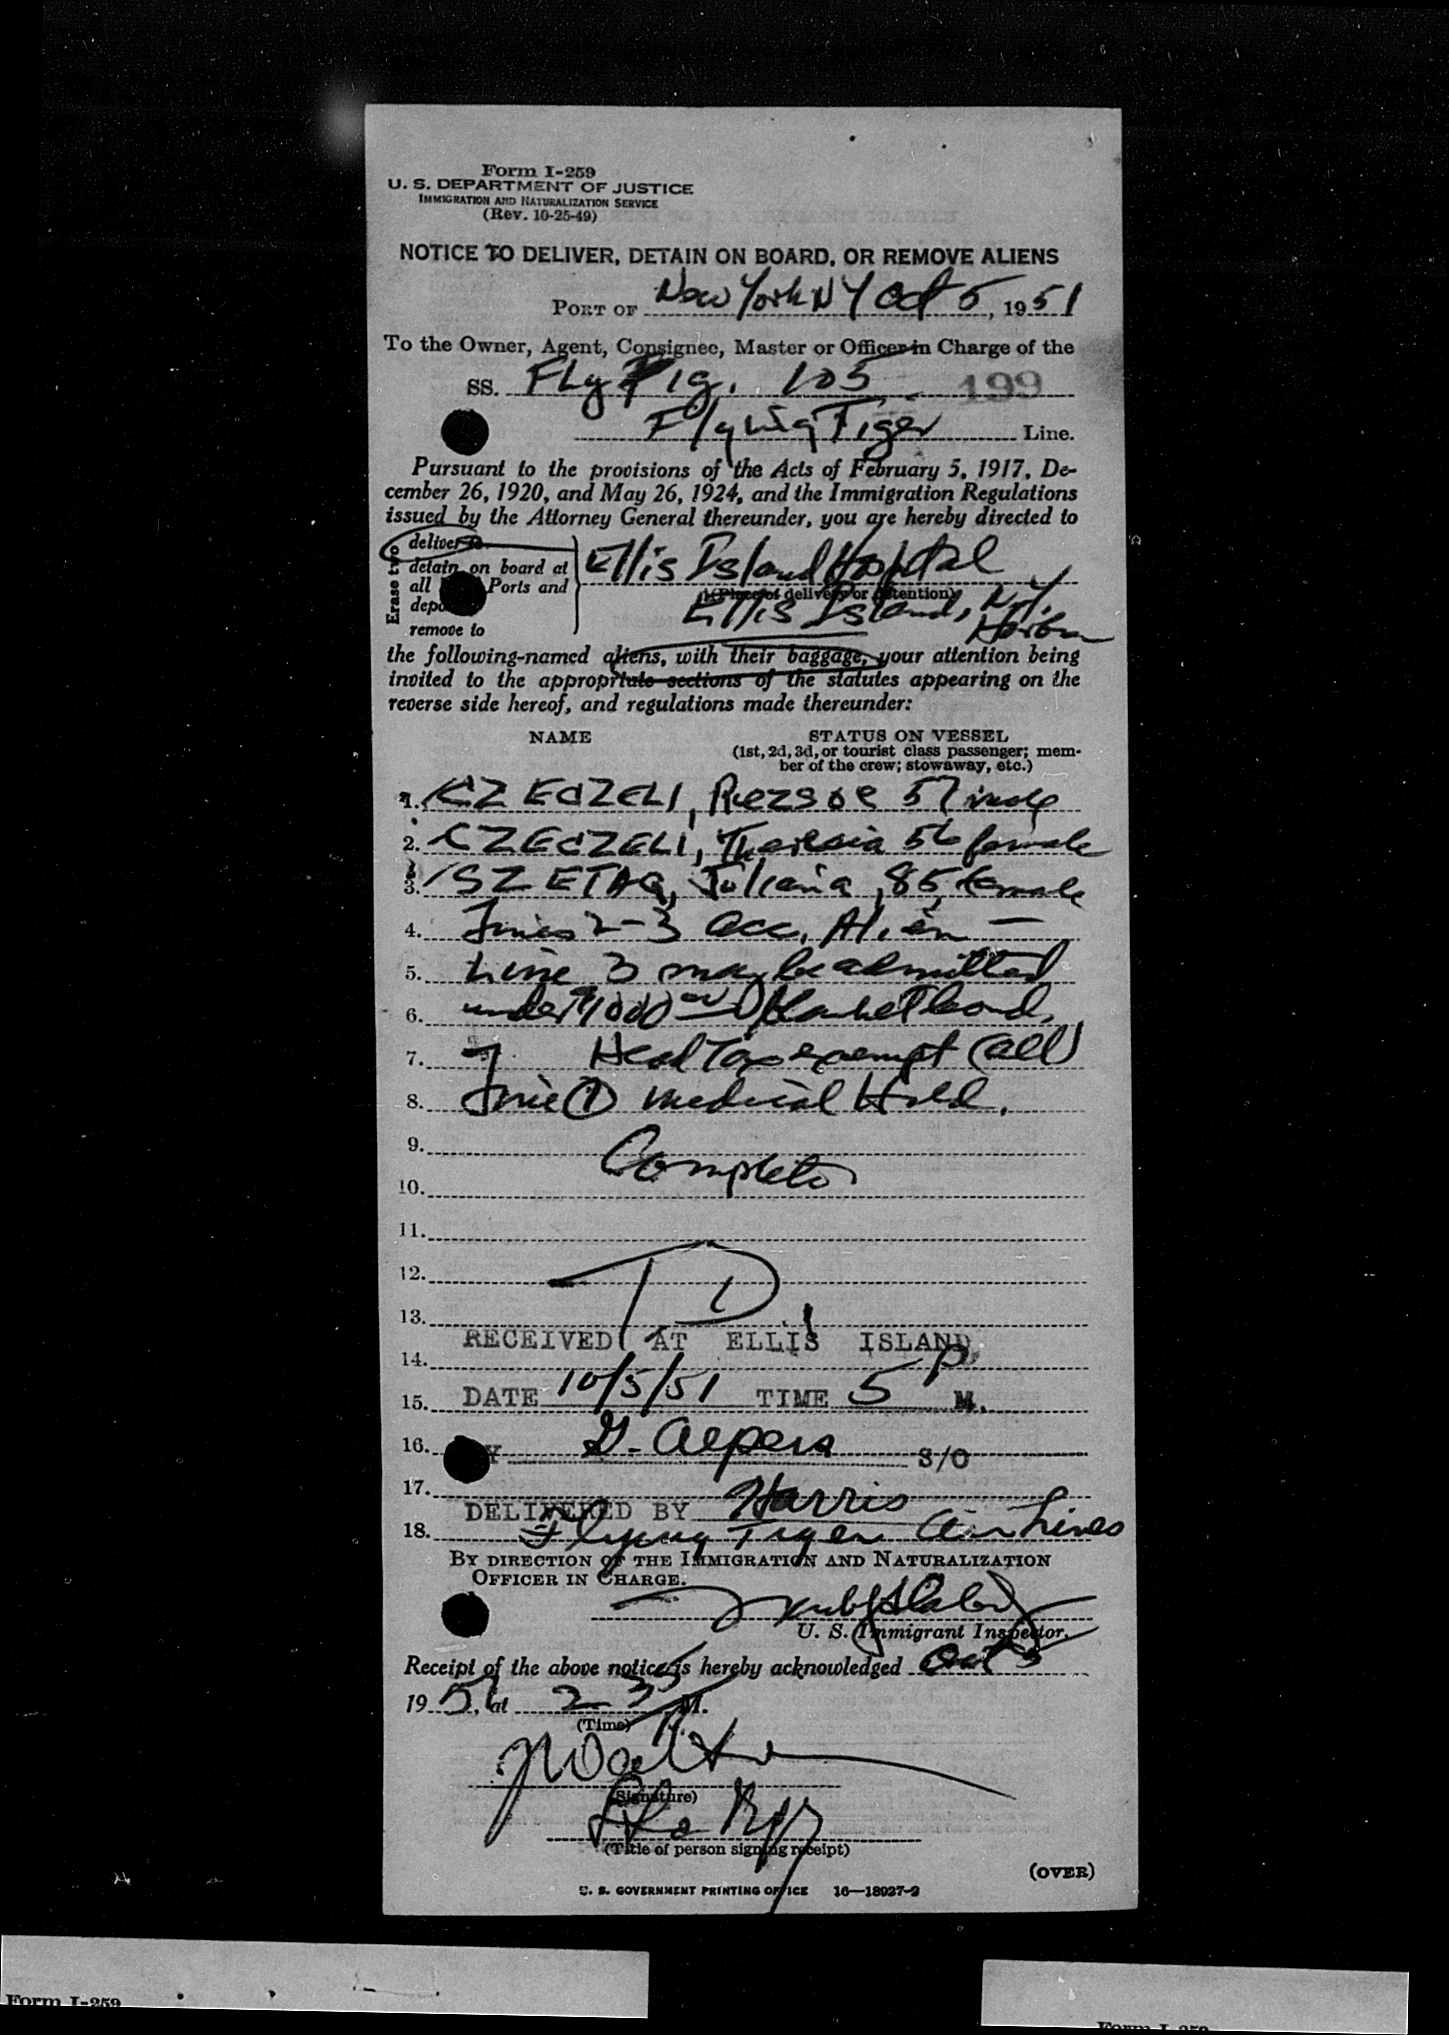 Form I-259
U. S. DEPARTMENT OF JUSTICE
IMMIGRATION AND NATURALIZATION SERVICE
(Rev. 10-25-49)
NOTICE TO DELIVER, DETAIN ON BOARD, OR REMOVE ALIENS
PORT OF New York NY Oct 5, 1951
To the Owner, Agent, Consignee, Master or Officer in Charge of the
SS. Fly Tig. 105 199
Flying Tiger Line.
Pursuant to the provisions of the Acts of February 5, 1917, De-
cember 26, 1920, and May 26, 1924, and the Immigration Regulations
issued by the Attorney General thereunder, you are hereby directed to
Erase two
deliver
detain on board at
all Ports and
remove to
Ellis Island Hospital
(Place of delivery or detention)
Ellis Island, N.Y.
Harbor
the following-named aliens, with their baggage, your attention being
invited to the appropriate sections of the statutes appearing on the
reverse side hereof, and regulations made thereunder:
NAME STATUS ON VESSEL
(1st, 2d, 3d, or tourist class passenger; mem-
ber of the crew; stowaway, etc.)
1. CZECZELI, Rezsoe 57 male
2. CZECZELI, Theresia 56 female
3. SZETAG, Juliana, 85, female
4. Lines 2-3 acc. Alien —
5. Line 3 may be admitted
6. under $1000 00 Blanket bond.
7. Head Tax exempt (all)
8. Line 1 medical Hold.
9. Complete
10.
11.
12. TD
13.
RECEIVED AT ELLIS ISLAND
14.
15. DATE 10/5/51 TIME 5 P M.
16. G. Alpers S/O
17.
DELIVERED BY Harris
18. Flying Tiger Air Lines
BY DIRECTION OF THE IMMIGRATION AND NATURALIZATION
OFFICER IN CHARGE.
U. S. Immigrant Inspector.
Receipt of the above notice is hereby acknowledged Oct 5
1951, at 2-35 P. M.
(Time)
(Signature)
(Title of person signing receipt)
(OVER)
U. S. GOVERNMENT PRINTING OFFICE 16—18927-2
Form I-259
Form I-259